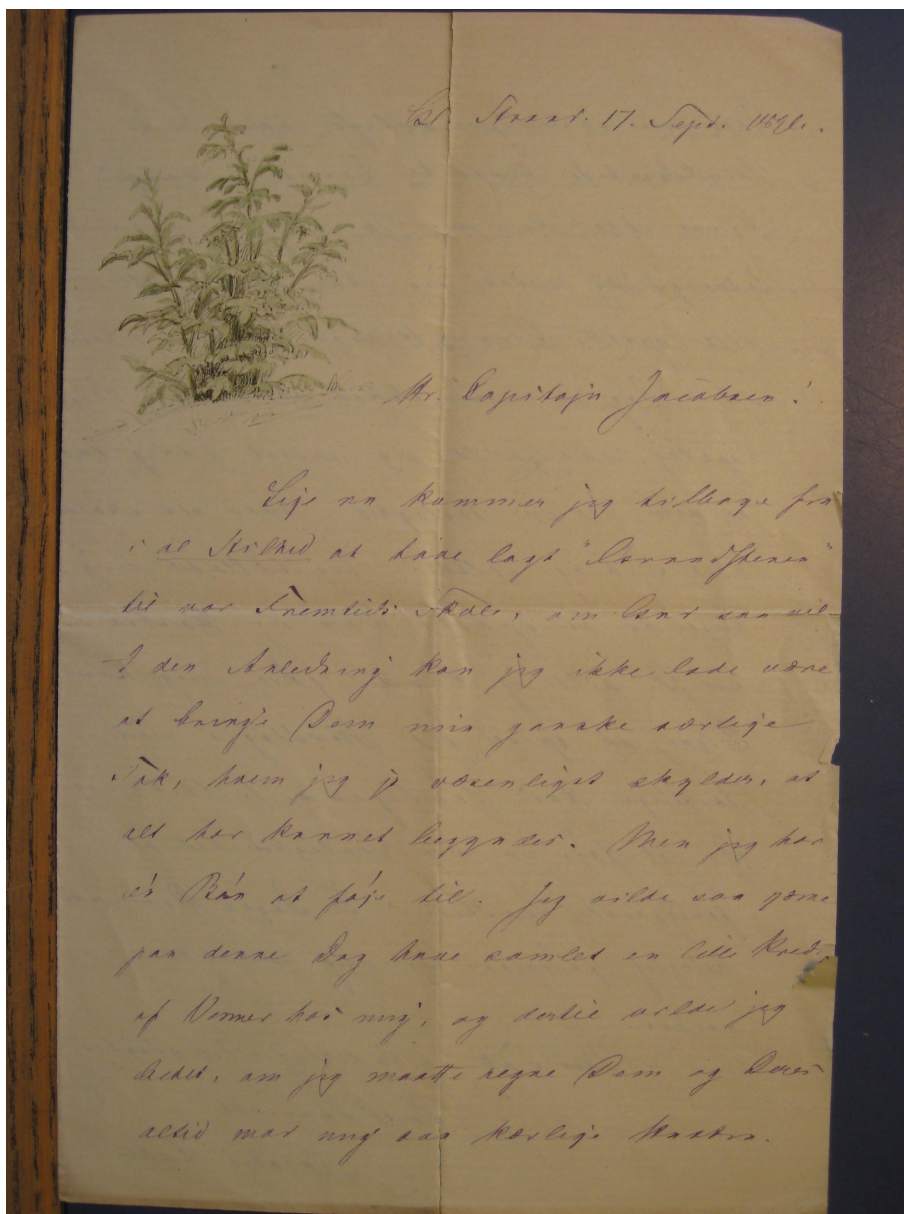 Gl. Strand. 17. Sept.
Hr. Capitajn Jacobsen!
Lige nu kommer jeg tilbage fra
i al Stilhed at have lagt "Grundstenen"
til vor Fremtids Skole, om Gud saa vil.
I den Anledning kan jeg ikke lade være
at bringe Dem min ganske særlige
Tak, hvem jeg jo væsenligst skylder, at
alt har kunnet begyndes. Men jeg har
én Bøn at føje til. Jeg vilde saa gjerne
paa denne Dag have samlet en lille Kreds
af Venner hos mig, og dertil vilde jeg
bedet, om jeg maatte regne Dem og Deres
altid mod mig saa kærlige Hustru.